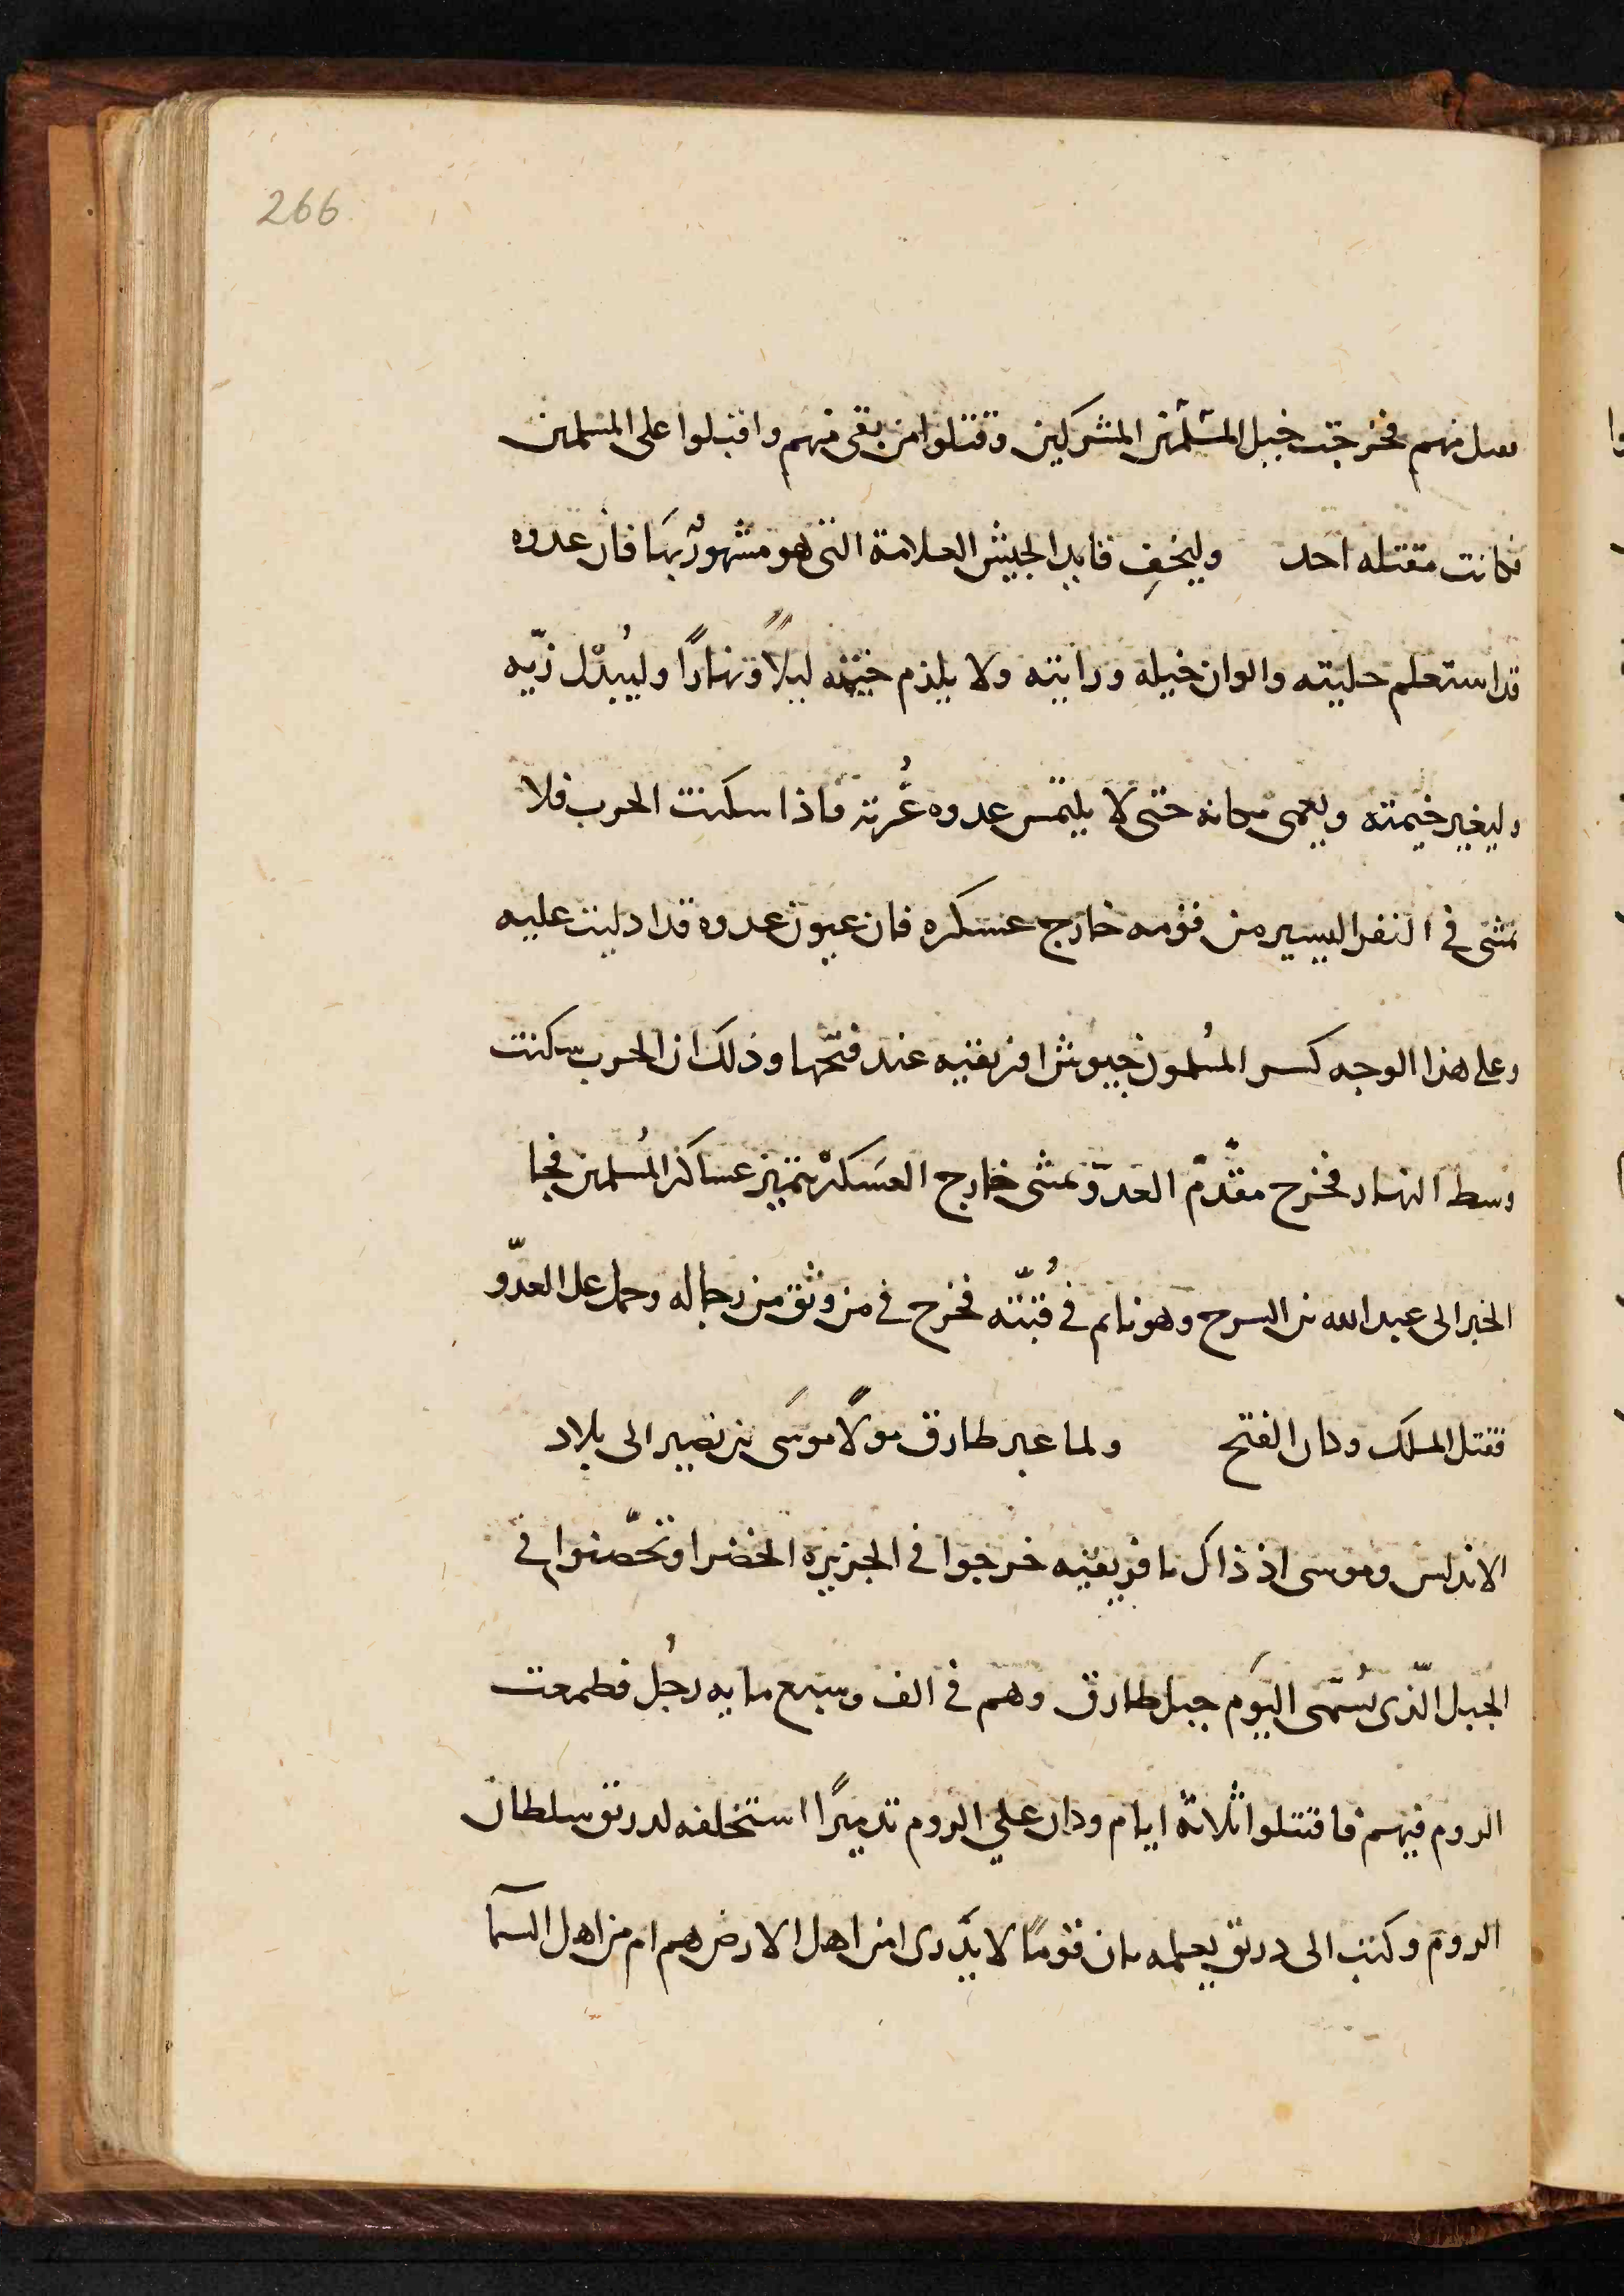 266
منهم فخرجت خيل المشركين وقتلوا من بقى منهم واقبلوا على المسلمين
فكانت مقتله احد وليخفِ قايد الجيش العلامة التى هو مشهورٌ بهَا فان عدوه
قد استعلم حليته والوان خيله ورايته ولا يلزم خيمته ليلاً ونهارًا وليُبدّل زيّه
وليغير خيمته ويعمى مكانه حتى لا يلتمس عدوه غُرته فاذا سكنت الحرب فلا
يمشى فى النفر اليسير من قومه خارج عسكره فان عيون عدوه قد اذكيت عليه
وعلى هذا الوجه كسر المُسلمون جيوش افريقيه عند فتحها وذلك ان الحرب سكنت
وسط النهار فخرج مقدّم العدوّ يمشى خارج العسَكر يتميز عساكر المُسلمين فجا
الخبر الى عبد الله بن السرح وهو نايم فى قُبّته فخرج فى من وثق من رجاله وحمل على العدّو
فقتل الملك وكان الفتح ولما عبر طارق مولًا موسَى بن نصير الى بلاد
الاندلس وموسى اذ ذاك بافريقيه خرجوا فى الجزيره الخضرا وتحّصنوا فى
الجبل الّذى يسُمّى اليَوم جبل طارق وهم فى الف وسبع مايه رجُل فطمعت
الروم فيهم فاقتتلوا ثلاثة ايام وكان علي الروم تدميرًا استخلفه لدريق سلطان
الروم وكتب الى دريق يعلمه بان قومًا لا يدّرى امن اهل الارض هم ام من اهل السمآ